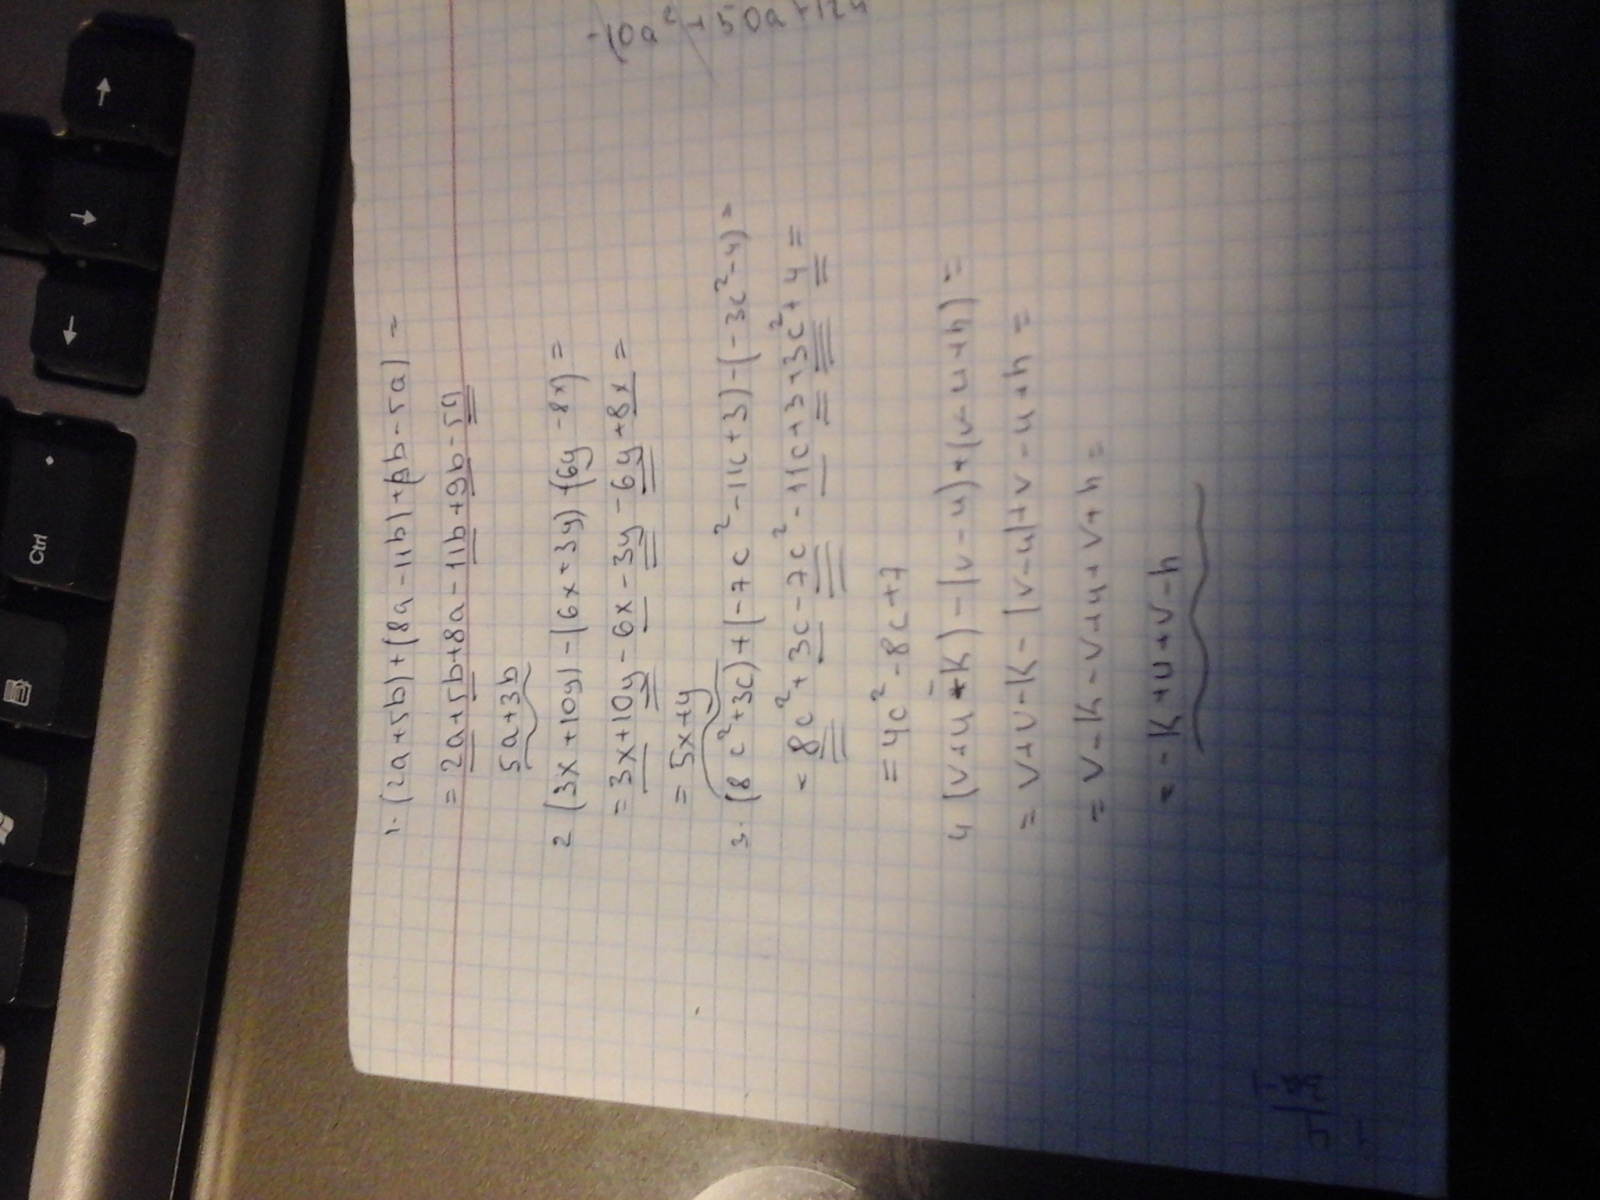 -10a² + 50a + 124
1. (2a+5b)+(8a-11b)+(9b-5a) =
= 2a+5b+8a-11b+9b-5a
5a+3b
2 (3x+10y)-(6x+3y)-(6y-8x) =
= 3x+10y-6x-3y-6y+8x =
= 5x+y
3. (8c²+3c)+(-7c²-11c+3)-(-3c²-4) =
= 8c²+3c-7c²-11c+3+3c²+4 =
= 4c²-8c+7
4 (v+u-k)-(v-u)+(v-u+h) =
= v+u-k-(v-u)+v-u+h =
= v-k-v+u+v+h =
= -k+u+v-h
Ctrl